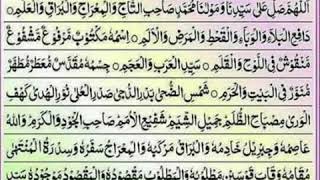 اَللّٰهُمَّ صَلِّ عَلٰى سَيِّدِنَا وَمَوْلٰنَا مُحَمَّدٍ صَاحِبِ التَّاجِ وَالْمِعْرَاجِ وَالْبُرَاقِ وَالْعَلَمِ ○
دَافِعِ الْبَلَآءِ وَالْوَبَآءِ وَالْقَحْطِ وَالْمَرَضِ وَالْاَلَمِ ○ اِسْمُهٗ مَكْتُوْبٌ مَّرْفُوْعٌ مَّشْفُوْعٌ
مَّنْقُوْشٌ فِى اللَّوْحِ وَالْقَلَمِ ○ سَيِّدِ الْعَرَبِ وَالْعَجَمِ ○ جِسْمُهٗ مُقَدَّسٌ مُّعَطَّرٌ مُّطَهَّرٌ
مُّنَوَّرٌ فِى الْبَيْتِ وَالْحَرَمِ ○ شَمْسِ الضُّحٰى بَدْرِ الدُّجٰى صَدْرِ الْعُلٰى نُوْرِ الْهُدٰى كَهْفِ
الْوَرٰى مِصْبَاحِ الظُّلَمِ ○ جَمِيْلِ الشِّيَمِ ○ شَفِيْعِ الْاُمَمِ ○ صَاحِبِ الْجُوْدِ وَالْكَرَمِ ○ وَاللّٰهُ
عَاصِمُهٗ وَجِبْرِيْلُ خَادِمُهٗ وَالْبُرَاقُ مَرْكَبُهٗ وَالْمِعْرَاجُ سَفَرُهٗ وَسِدْرَةُ الْمُنْتَهٰى
مَقَامُهٗ وَقَابَ قَوْسَيْنِ مَطْلُوْبُهٗ وَالْمَطْلُوْبُ مَقْصُوْدُهٗ وَالْمَقْصُوْدُ مَوْجُوْدُهٗ سَيِّدِ